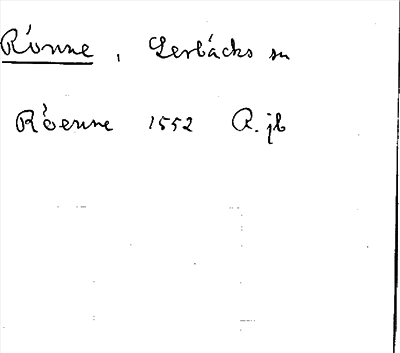 Rónne, Lerbäcks sn
Róenne 1552 R. jb